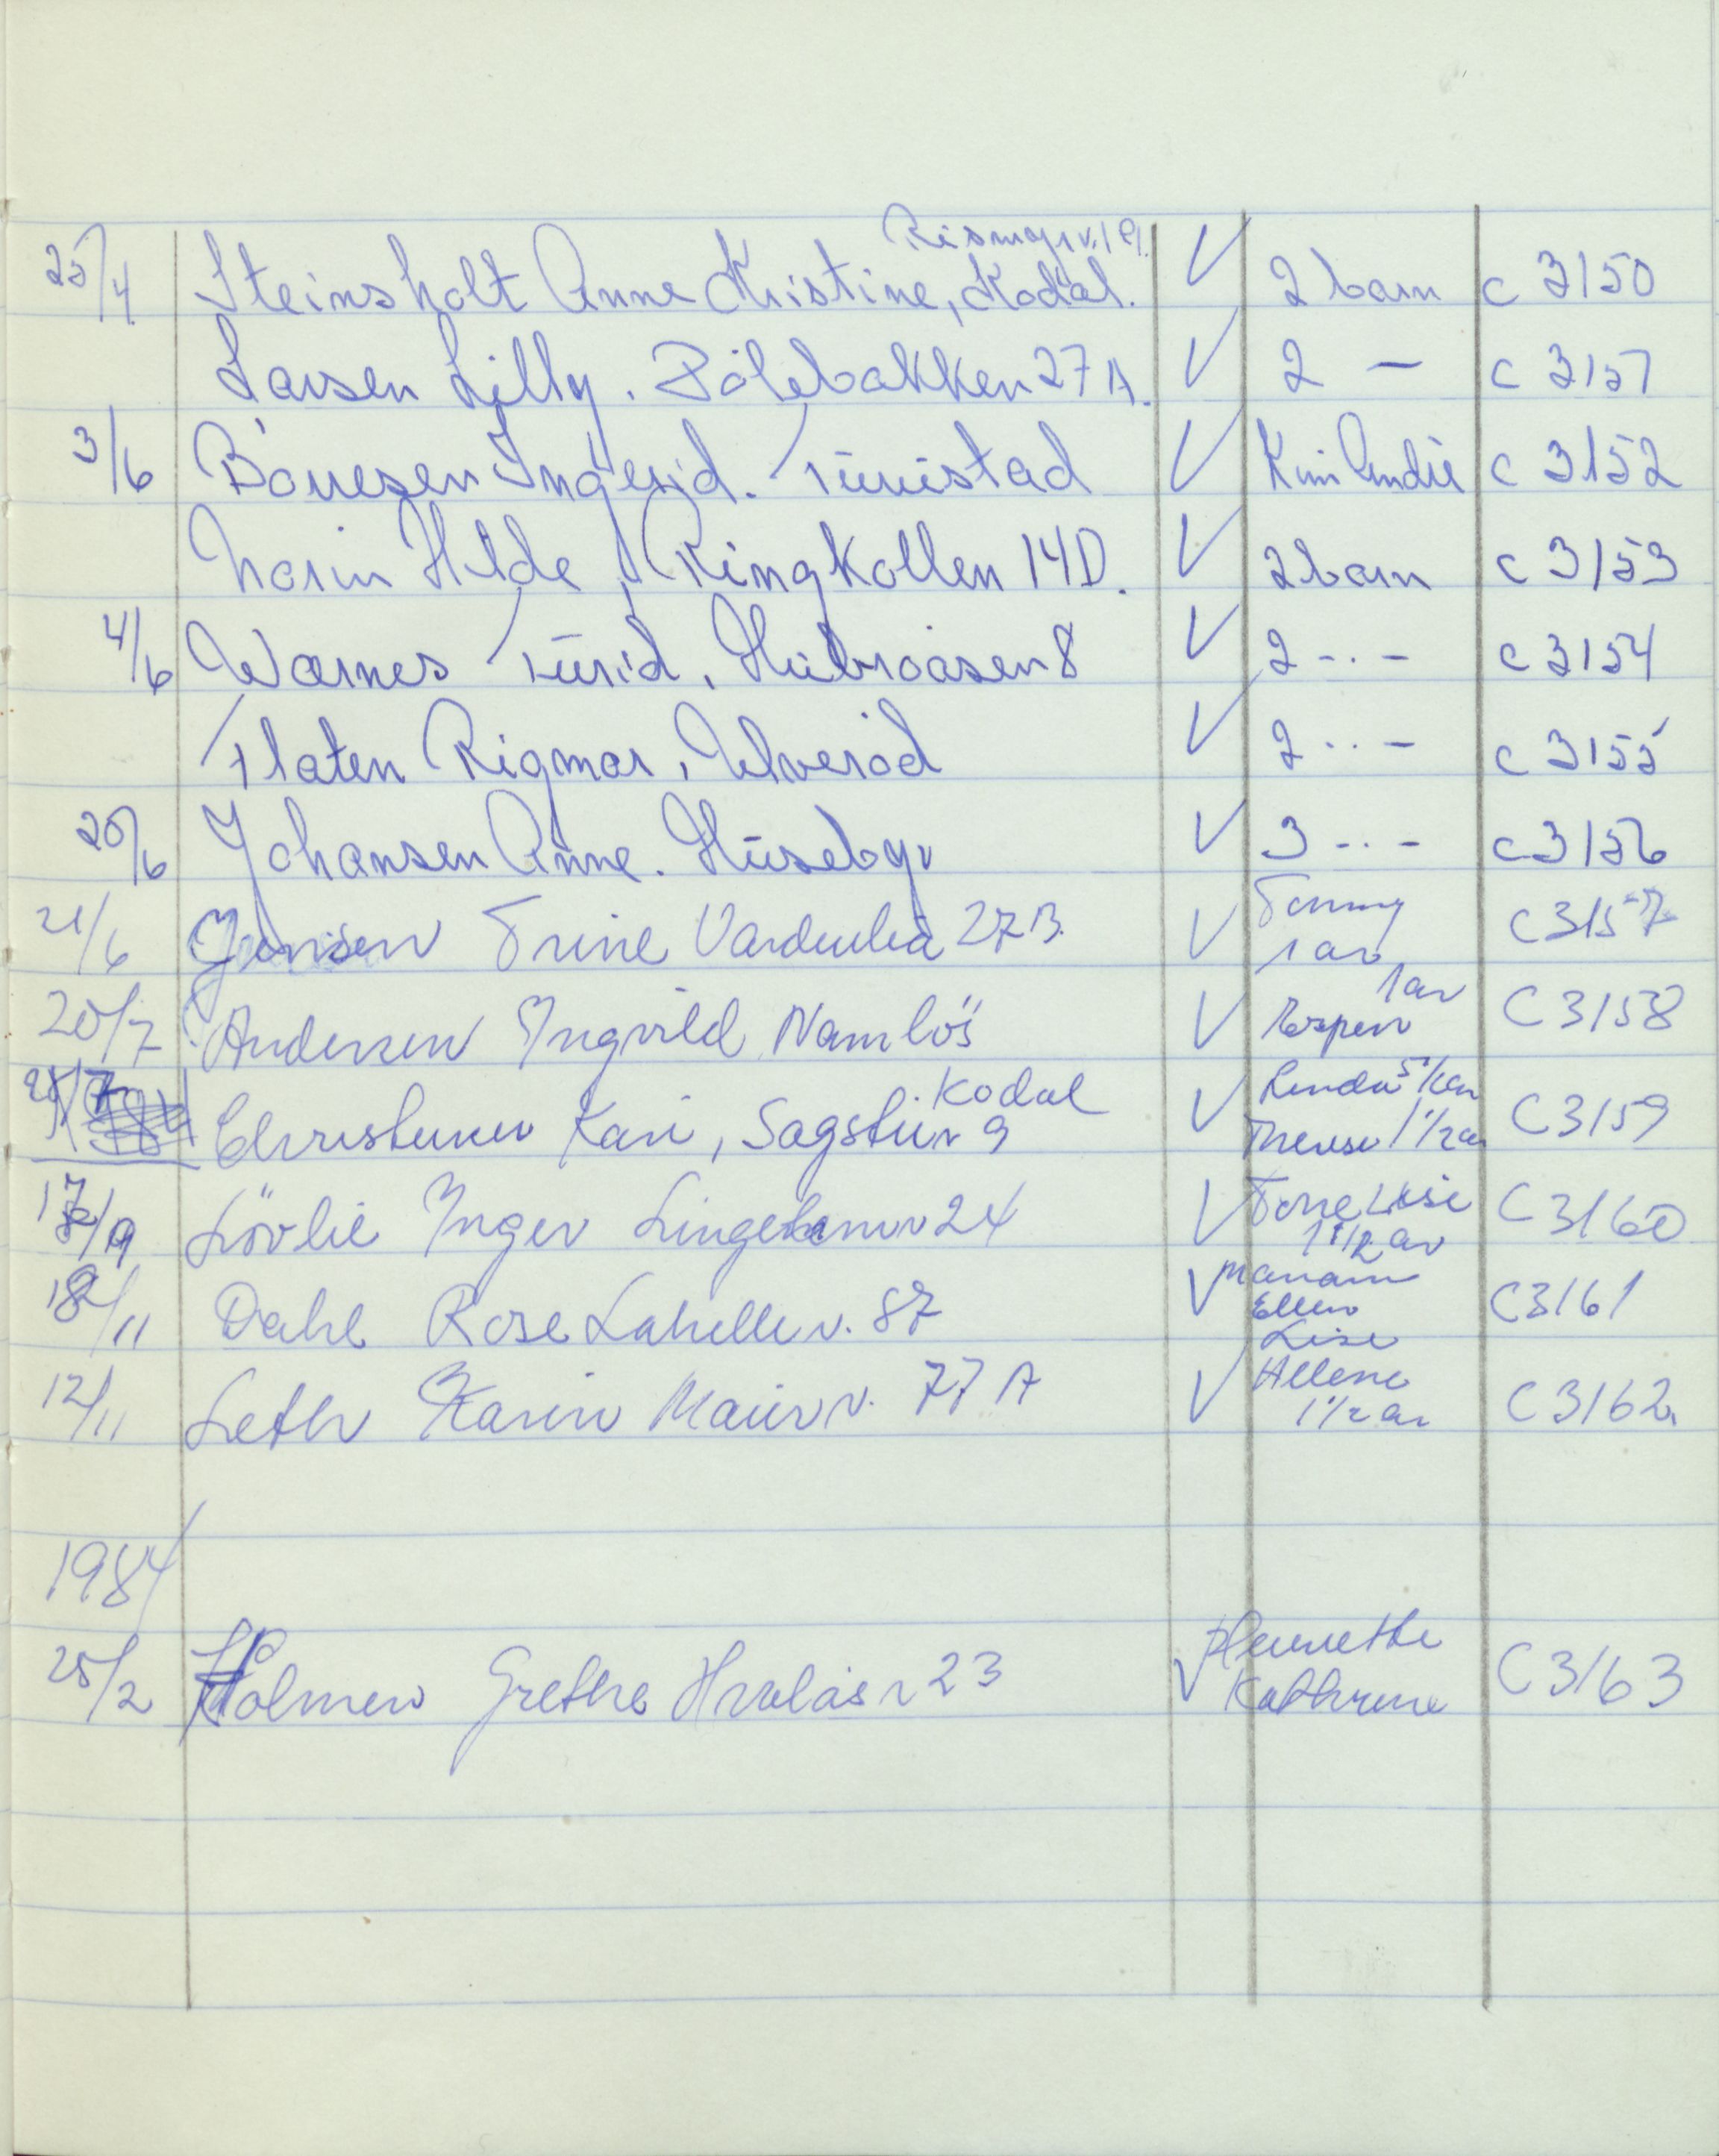 25/4 Steinsholt Anne Kristine, Kodal. V 2 barn c 3150
Larsen Lilly. Pölsbakken 27 A. V 2 — c 3151
3/6 Börresen Ingerid. Tunistad V Kim André c 3152
Marin Hilde, Ringkollen 14D. V 2 barn c 3153
4/6 Warnes Turid, Hubroåsen 8 V 2 -..- c 3154
Flaten Rigmor, Ulveröd V 2 ..- c 3155
20/6 Johansen Anne. Husebyv V 3 -..- c 3156
21/6 Jensen Trine Vardeulia 27B. V Tommy 1 år C3157
20/7 Andersen Ingvild Namløs V 1 år Espen C3158
Kodal
Christensen Kari, Sagstuv 9 V Linda Therese 1 1/2 år C3159
17/9 Lövlie Inger V Tone Lise 1 1/2 år C3160
11 Dahl Rose Lahellev. 87 V Mariann Ellen Lise C3161
12/11 Leth Karin Maierv. 77 A V Hellene 1 1/2 år C3162
1984
25/2 Holmen Grethe 23 V Henriethe Kathrine C3163